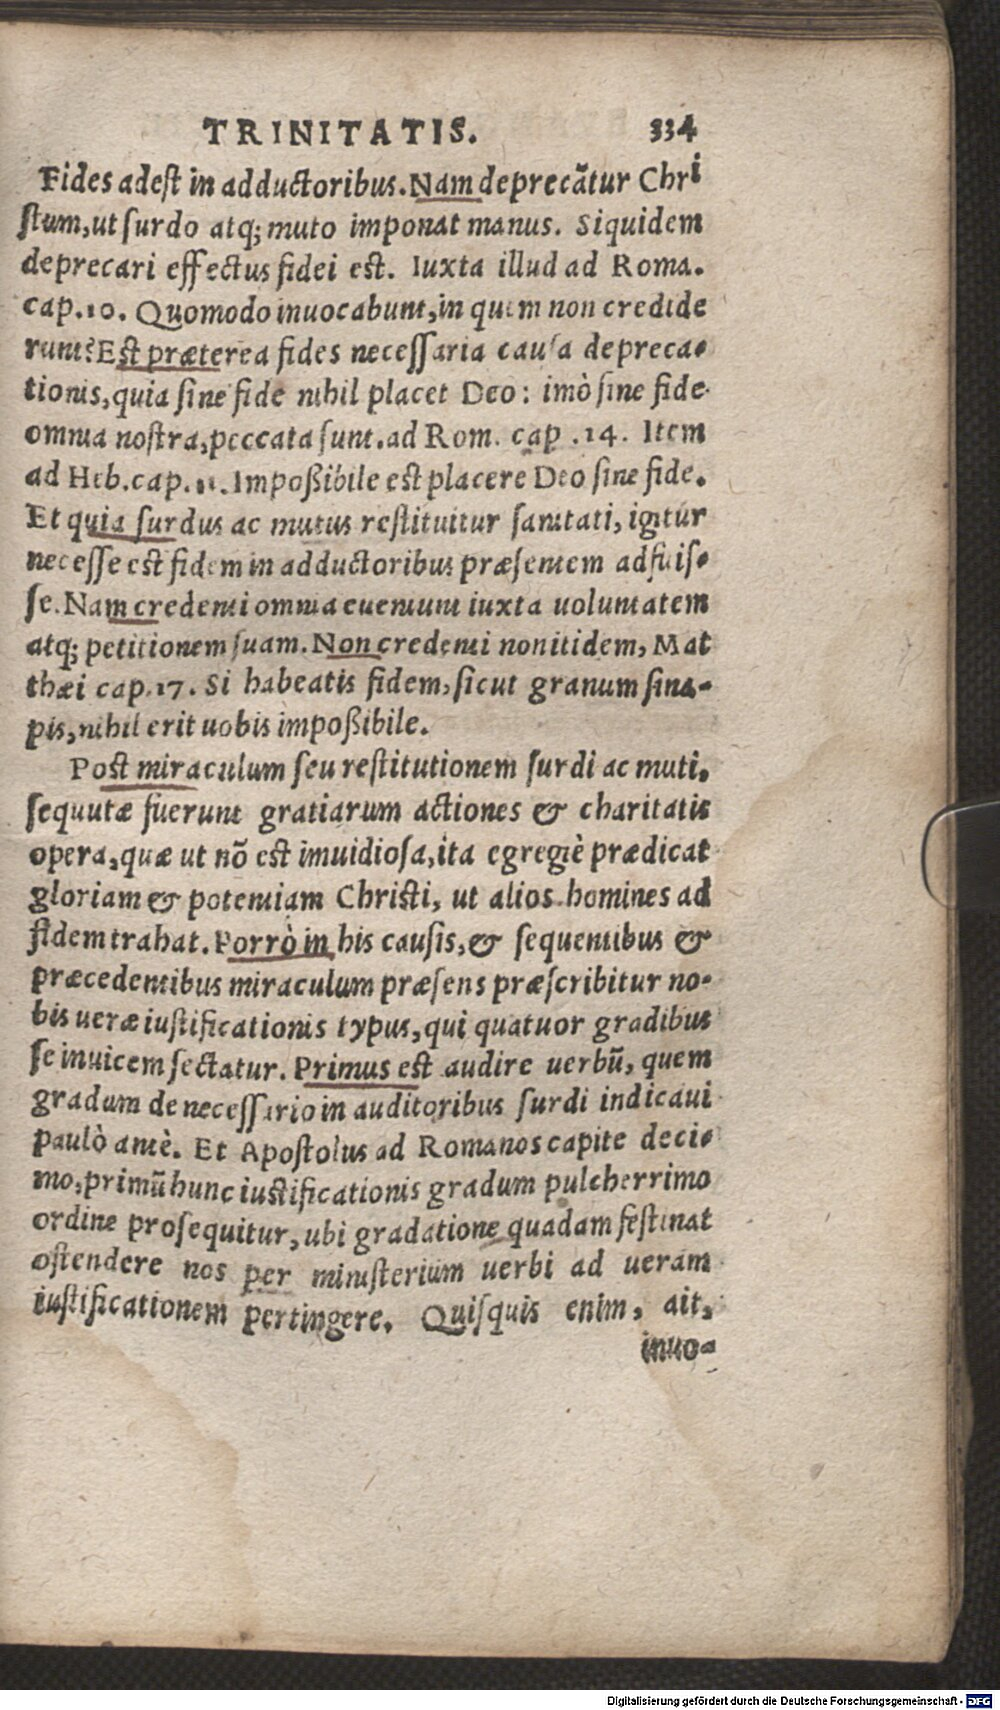 TRINITATIS. 334
Fides adest in adductoribus. Nam deprecãtur Chri
stum, ut surdo atq; muto imponat manus. Siquidem
deprecari effectus fidei est. Iuxta illud ad Roma.
cap. 10. Quomodo inuocabunt, in quem non credide
runt? Est præterea fides necessaria causa depreca-
tionis, quia sine fide nihil placet Deo: imò sine fide
omnia nostra, peccata sunt. ad Rom. cap. 14. Item
ad Heb. cap. 11. Impoßibile est placere Deo sine fide.
Et quia surdus ac mutus restituitur sanitati, igitur
necesse est fidem in adductoribus præsentem adfuis-
se. Nam credenti omnia eueniunt iuxta uoluntatem
atq; petitionem suam. Non credenti non itidem, Mat
thæi cap. 17. Si habeatis fidem, sicut granum sina-
pis, nihil erit uobis impoßibile.
Post miraculum seu restitutionem surdi ac muti,
sequutæ fuerunt gratiarum actiones & charitatis
opera, quæ ut nõ est inuidiosa, ita egregiè prædicat
gloriam & potentiam Christi, ut alios homines ad
fidem trahat. Porrò in his causis, & sequentibus &
præcedentibus miraculum præsens præscribitur no-
bis ueræ iustificationis typus, qui quatuor gradibus
se inuicem sectatur. Primus est audire uerbũ, quem
gradum de necessario in auditoribus surdi indicaui
paulò antè. Et Apostolus ad Romanos capite deci-
mo, primũ hunc iustificationis gradum pulcherrimo
ordine prosequitur, ubi gradatione quadam festinat
ostendere nos per ministerium uerbi ad ueram
iustificationem pertingere. Quisquis enim, ait,
inuo-
Digitalisierung gefördert durch die Deutsche Forschungsgemeinschaft - DFG